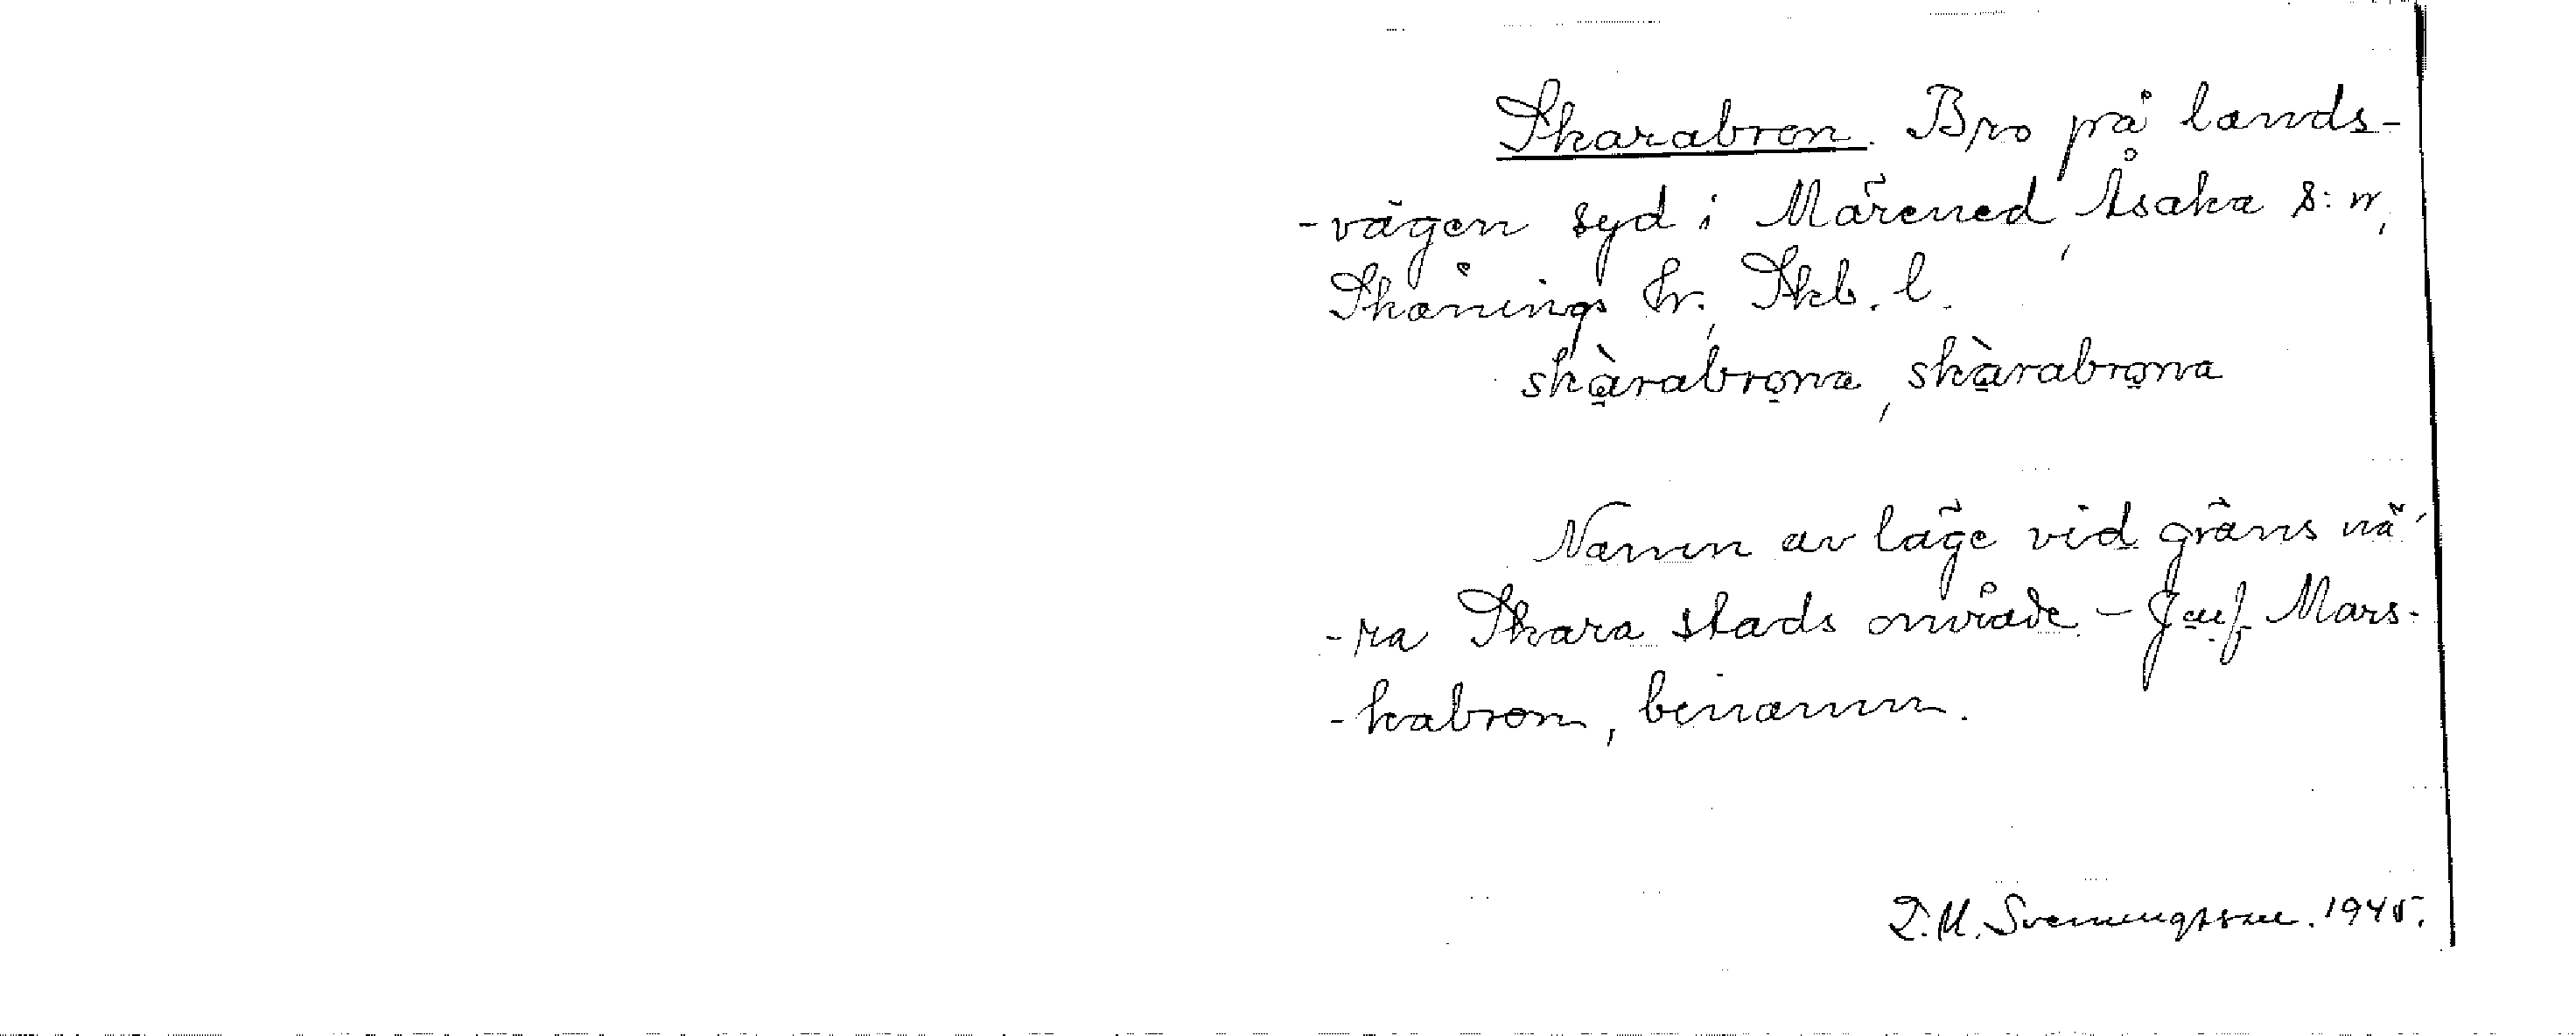 Skarabron. Bro på lands-
-vägen syd i Märened, Åsaka s:n,
Skånings hr, Skb. l.
skàrabrona, skàrabrona
Namn av läge vid gräns nä-
-ra Skara stads område. – Jmf. Mars-
-kabron, binamn.
Svenningsson. 1945.